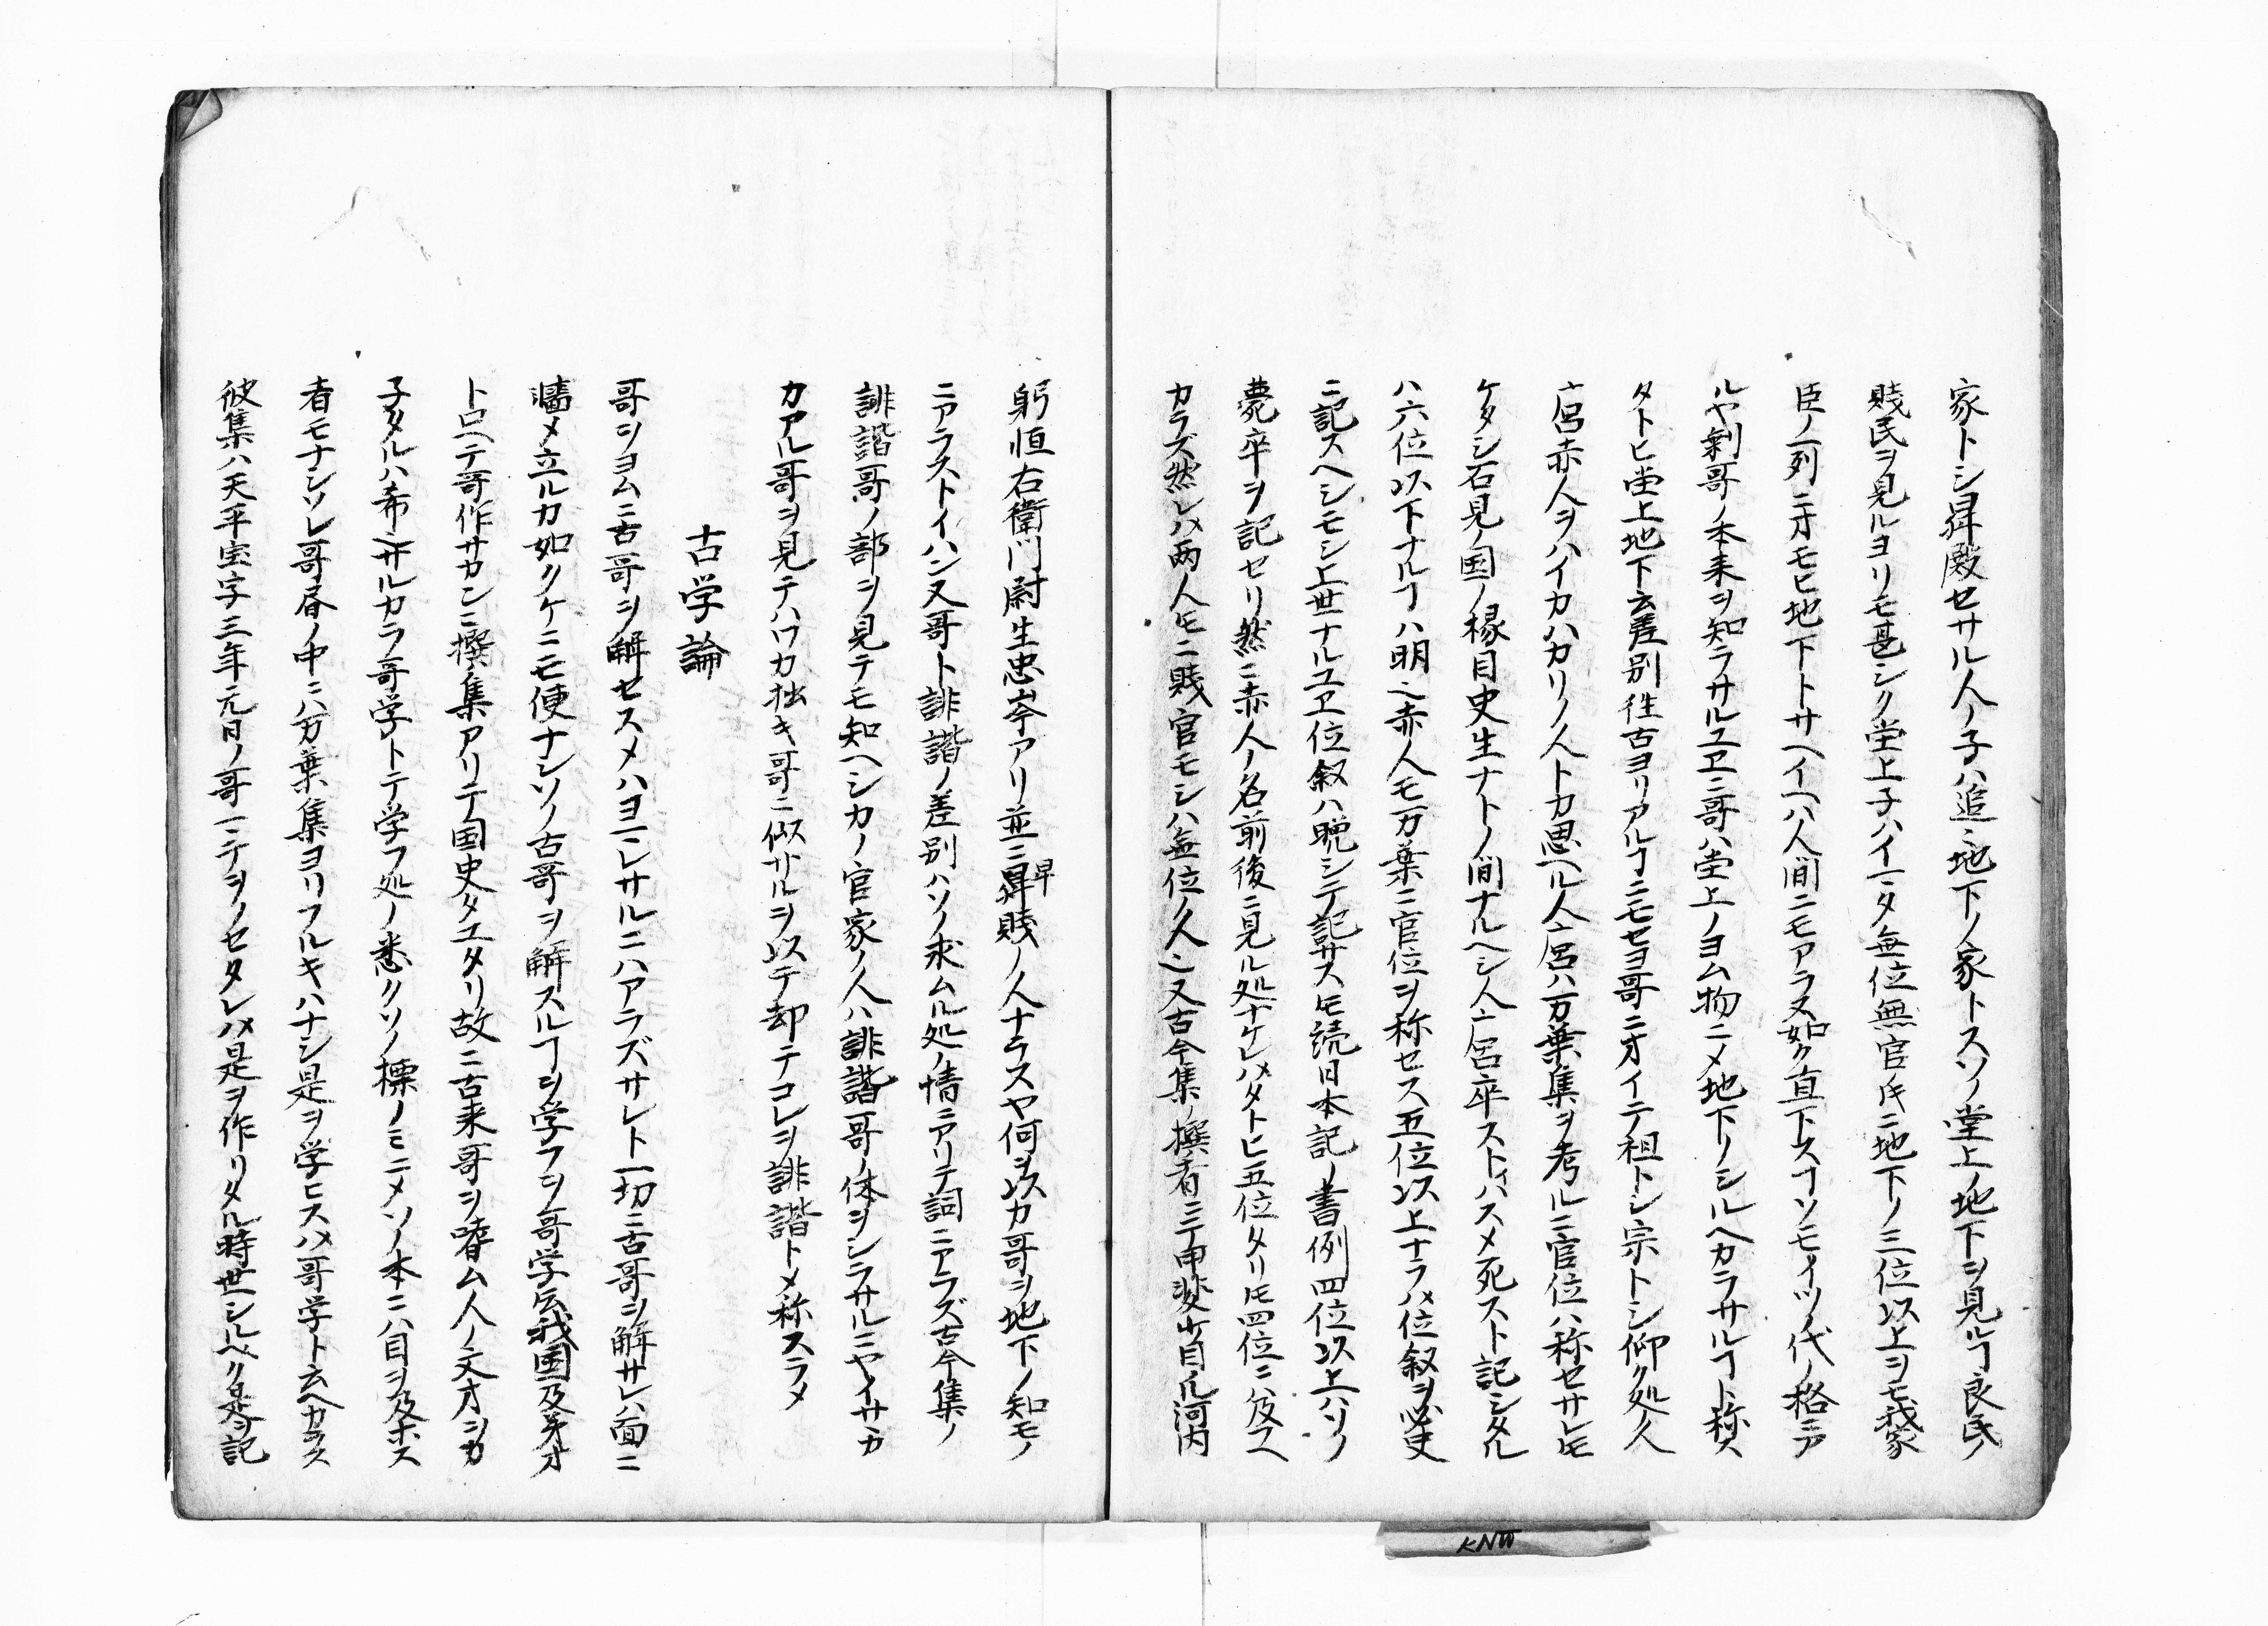 家トシ昇殿セサル人ノ子ハ追〻地下ノ家トスソノ堂上ノ地下ヲ見ルヿ良民ノ
賤民ヲ見ルヨリモ甚シク堂上子ハイマタ無位無官ノ氏ニ地下ノ三位以上ヲモ我家
臣ノ列ニオモヒ地下トサヘイヘハ人間ニモアラヌ如ク直下スソモイツノ代ノ格ニア
ルヤ剰哥ノ本来ヲ知ラサルユヱニ哥ハ堂上ノヨム物ニメ地下ノシルヘカラサルヿト称ス
タトヒ堂上地下云差別往古ヨリアルヿニモセヨ哥ニオイテ祖トシ宗トシ仰ク処人
亠呂赤人ヲハイカハカリノ人トカ思ヘル人亠呂ハ万葉集ヲ考ルニ官位ハ称セサレ𪜈
ケタシ石見ノ国ノ椽目史生ナトノ間ナルヘシ人亠呂卒ストイハスメ死スト記シタル
ハ六位以下ナルヿハ明〻赤人モ万葉ニ官位ヲ称セス五位以上ナラハ位叙ヲ必史
ニ記スヘシモシ上世ナルユヱ位叙ハ脱シテ記サス𪜈続日本記ノ書例四位以上ハソノ
薨卒ヲ記セリ然ニ赤人ノ名前後ニ見ル処ナケレハタトヒ五位タリ𪜈四位ニハ及フヘ
カラズ然レハ両人𪜈ニ賤官モシハ無位ノ人〻又古今集ノ撰者ニテ甲斐少目凡河内
躬恒右衛門尉生忠岑アリ並ニ昇賤ノ人ナラスヤ何ヲ以カ哥ヲ地下ノ知モノ
卑
ニアラストイハン又哥ト誹諧ノ差別ハソノ求ムル処ノ情ニアリテ詞ニアラズ古今集ノ
誹諧哥ノ部ヲ見テモ知ヘシカノ官家ノ人ハ誹諧哥ノ体ヲシラサルニヤイサヽカ
カアル哥ヲ見テハワカ拙キ哥ニ似サルヲ以テ却テコレヲ誹諧トメ称スラメ
古学論
哥ヲヨムニ古哥ヲ解セスメハヨマレサルニハアラズサレト一切ニ古哥ヲ解サレハ面ニ
牆メ立ルカ如クケニモ便ナシソノ古哥ヲ解スルヿヲ学フヲ哥学云我国及才
トロヘテ哥作サカンニ撰集アリテ国史タエタリ故ニ古来哥ヲ嗜ム人ノ文オシカ
子タルハ希〻サルカラ哥学トテ学フ処ノ悉クソノ標ノミニメソノ本ニハ目ヲ及ホス
者モナシソレ哥昏ノ中ニハ万葉集ヨリフルキハナシ是ヲ学ヒスハ哥学ト云ヘカラス
彼集ハ天平宝字三年元日ノ哥ニテヲノセタレハ是ヲ作リタル時世シルヘク是ヲ記
KNW